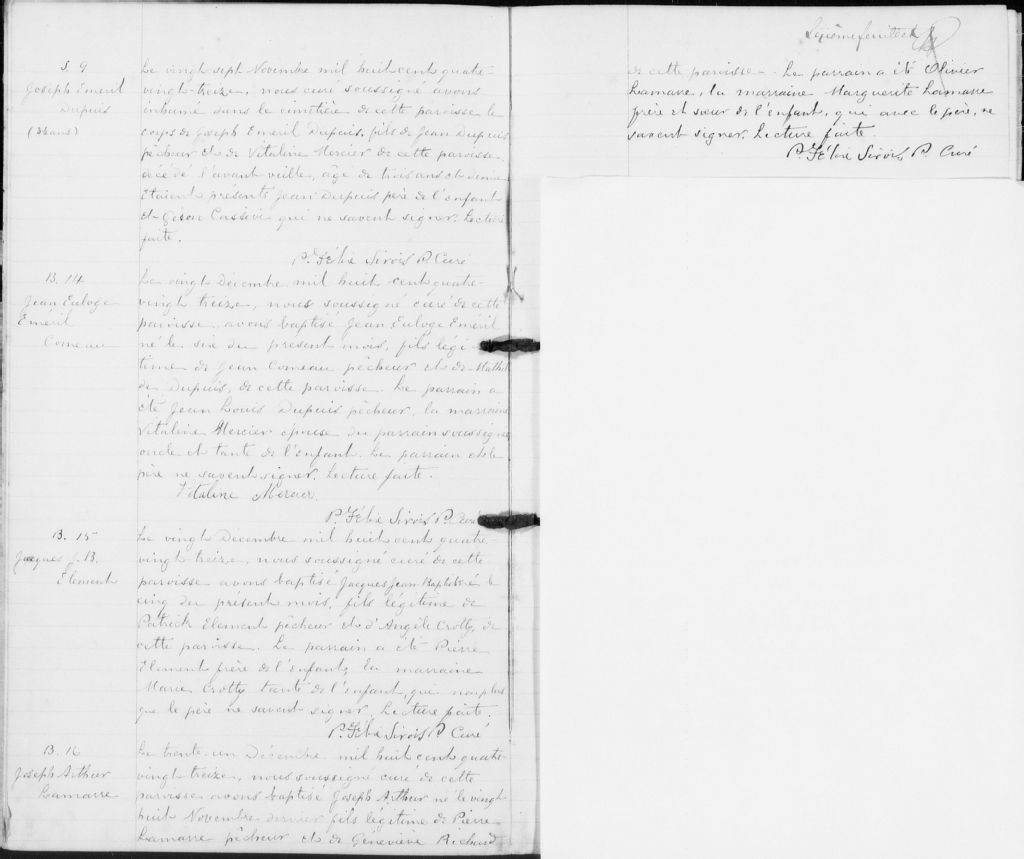 S. 9
Joseph Emeril
Dupuis
(3½ans)
Le vingt sept Novembre mil huit cent quatre-
vingt-treize, nous curé soussigné avons
inhumé dans le cimetière de cette paroisse le
corps de Joseph Emeril Dupuis, fils de Jean Dupuis
pêcheur et de Vitaline Mercier de cette paroisse
décédé l'avant veille, âgé de trois ans et demi
Etaient présents Jean Dupuis père de l'enfant
et Cassivi qui ne savent signer. Lecture
faite.
P. Félix Sirois P. Curé
B. 14
Jean Euloge
Eméril
Comeau
Le vingt Décembre mil huit cent quatre-
vingt treize, nous soussigné curé de cette
paroisse avons baptisé Jean Euloge Eméril
né le six du présent mois, fils légi-
time de Jean Comeau pêcheur et de Mathil
de Dupuis, de cette paroisse. Le parrain a
été Jean Louis Dupuis pêcheur, la marraine
Vitaline Mercier épouse du parrain soussignée
oncle et tante de l'enfant. Le parrain et le
père ne savent signer. Lecture faite.
Vitaline Mercier
P. Félix Sirois P. Curé
B. 15
Jacques J. B.
Element
Le vingt Décembre mil huit cent quatre-
vingt-treize, nous soussigné curé de cette
paroisse avons baptisé Jacques Jean Baptiste né le
cinq du présent mois, fils légitime de
Patrick Element pêcheur et d'Angèle Crotty, de
cette paroisse. Le parrain a été Pierre
Element frère de l'enfant, la marraine
Marie Crotty tante de l'enfant, qui non plus
que le père ne savent signer. Lecture faite.
P. Félix Sirois P. Curé
B. 16
Joseph Arthur
Lamarre
Le trente-un Décembre mil huit cent quatre-
vingt treize, nous soussigné curé de cette
paroisse avons baptisé Joseph Arthur né le vingt
huit Novembre dernier fils légitime de Pierre
Lamarre pêcheur et de Géneviève Richard
Sixième feuillet
de cette paroisse. Le parrain a été Olivier
Lamarre, la marraine Marguerite Lamarre
frère et sœur de l'enfant, qui avec le père, ne
savent signer. Lecture faite.
P. Félix Sirois P. Curé